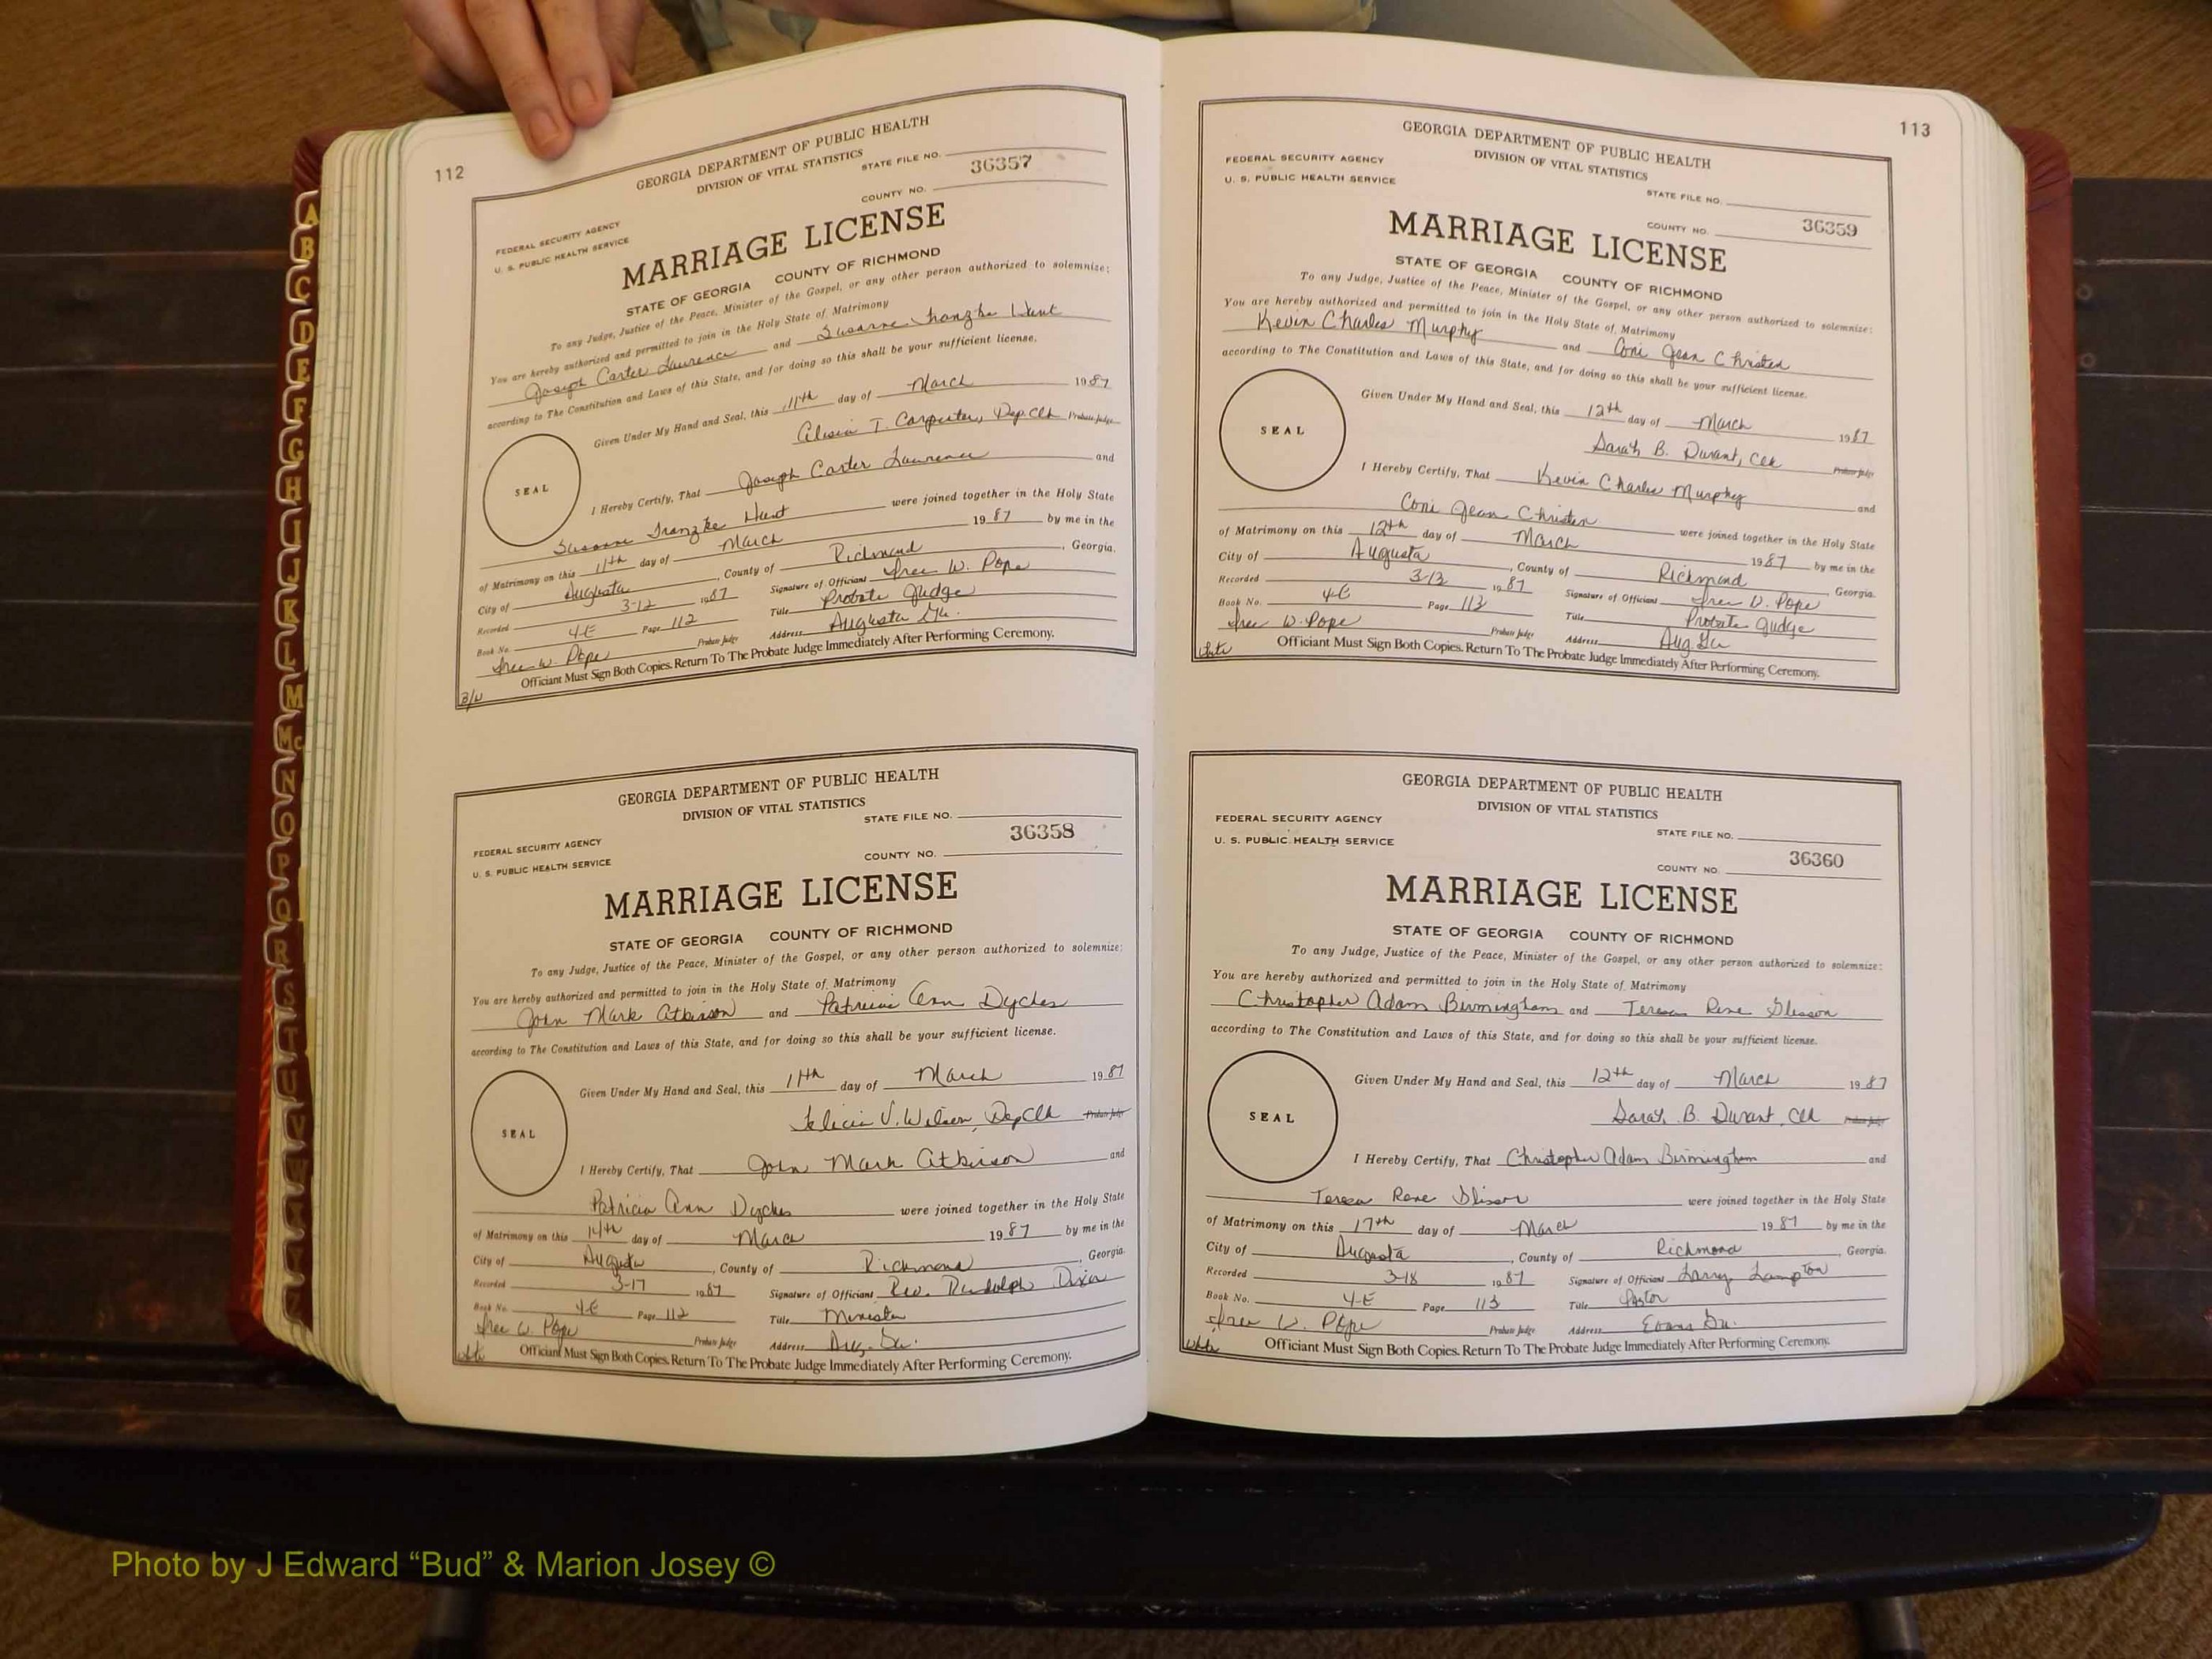 112
GEORGIA DEPARTMENT OF PUBLIC HEALTH
DIVISION OF VITAL STATISTICS
STATE FILE NO.
36357
COUNTY NO.
FEDERAL SECURITY AGENCY
U. S. PUBLIC HEALTH SERVICE
MARRIAGE LICENSE
STATE OF GEORGIA COUNTY OF RICHMOND
To any Judge, Justice of the Peace, Minister of the Gospel, or any other person authorized to solemnize:
You are hereby authorized and permitted to join in the Holy State of Matrimony
Joseph Carter Lawrence and Susanne Franzke Hunt
according to The Constitution and Laws of this State, and for doing so this shall be your sufficient license.
Given Under My Hand and Seal, this 11th day of March 1987
Alesia T. Carpenter, Dep. Clk Probate Judge
SEAL
I Hereby Certify, That Joseph Carter Lawrence and
Susanne Franzke Hunt were joined together in the Holy State
of Matrimony on this 11th day of March 1987 by me in the
City of Augusta, County of Richmond, Georgia.
Recorded 3-12 1987 Signature of Officiant W. Pope
Book No. 4-E Page 112 Title Probate Judge
W. Pope Probate Judge Address Augusta Ga.
Officiant Must Sign Both Copies. Return To The Probate Judge Immediately After Performing Ceremony.
GEORGIA DEPARTMENT OF PUBLIC HEALTH
DIVISION OF VITAL STATISTICS
STATE FILE NO.
36358
FEDERAL SECURITY AGENCY
U. S. PUBLIC HEALTH SERVICE
COUNTY NO.
MARRIAGE LICENSE
STATE OF GEORGIA COUNTY OF RICHMOND
To any Judge, Justice of the Peace, Minister of the Gospel, or any other person authorized to solemnize:
You are hereby authorized and permitted to join in the Holy State of Matrimony
John Mark Atkinson and Patricia Ann Dyches
according to The Constitution and Laws of this State, and for doing so this shall be your sufficient license.
Given Under My Hand and Seal, this 11th day of March 1987
Felicia V. Wilson, Dep Clk Probate Judge
SEAL
I Hereby Certify, That John Mark Atkinson and
Patricia Ann Dyches were joined together in the Holy State
of Matrimony on this 14th day of March 1987 by me in the
City of Augusta, County of Richmond, Georgia.
Recorded 3-17 1987 Signature of Officiant Rev. Rudolph Dixon
Book No. 4-E Page 112 Title Minister
W. Pope Probate Judge Address Aug. Ga.
Officiant Must Sign Both Copies. Return To The Probate Judge Immediately After Performing Ceremony.
113
GEORGIA DEPARTMENT OF PUBLIC HEALTH
DIVISION OF VITAL STATISTICS
FEDERAL SECURITY AGENCY
U. S. PUBLIC HEALTH SERVICE
STATE FILE NO.
36359
COUNTY NO.
MARRIAGE LICENSE
STATE OF GEORGIA COUNTY OF RICHMOND
To any Judge, Justice of the Peace, Minister of the Gospel, or any other person authorized to solemnize:
You are hereby authorized and permitted to join in the Holy State of Matrimony
Kevin Charles Murphy and Coni Jean Christen
according to The Constitution and Laws of this State, and for doing so this shall be your sufficient license.
Given Under My Hand and Seal, this 12th day of March 1987
Sarah B. Durant, Clk Probate Judge
SEAL
I Hereby Certify, That Kevin Charles Murphy and
Coni Jean Christen were joined together in the Holy State
of Matrimony on this 12th day of March 1987 by me in the
City of Augusta, County of Richmond, Georgia.
Recorded 3-13 1987 Signature of Officiant W. Pope
Book No. 4E Page 113 Title Probate Judge
W. Pope Probate Judge Address Aug Ga
Officiant Must Sign Both Copies. Return To The Probate Judge Immediately After Performing Ceremony.
GEORGIA DEPARTMENT OF PUBLIC HEALTH
DIVISION OF VITAL STATISTICS
FEDERAL SECURITY AGENCY
U. S. PUBLIC HEALTH SERVICE
STATE FILE NO.
36360
COUNTY NO.
MARRIAGE LICENSE
STATE OF GEORGIA COUNTY OF RICHMOND
To any Judge, Justice of the Peace, Minister of the Gospel, or any other person authorized to solemnize:
You are hereby authorized and permitted to join in the Holy State of Matrimony
Christopher Adam Birmingham and Teresa Rene Glisson
according to The Constitution and Laws of this State, and for doing so this shall be your sufficient license.
Given Under My Hand and Seal, this 12th day of March 1987
Sarah B. Durant, Clk Probate Judge
SEAL
I Hereby Certify, That Christopher Adam Birmingham and
Teresa Rene Glisson were joined together in the Holy State
of Matrimony on this 17th day of March 1987 by me in the
City of Augusta, County of Richmond, Georgia.
Recorded 3-18 1987 Signature of Officiant Larry Lampton
Book No. 4-E Page 113 Title Pastor
W. Pope Probate Judge Address Evans Ga.
Officiant Must Sign Both Copies. Return To The Probate Judge Immediately After Performing Ceremony.
A
B
C
D
E
F
G
H
I
J
K
L
M
Mc
N
O
P
Q
R
S
T
U
V
W
Photo by J Edward “Bud” & Marion Josey ©